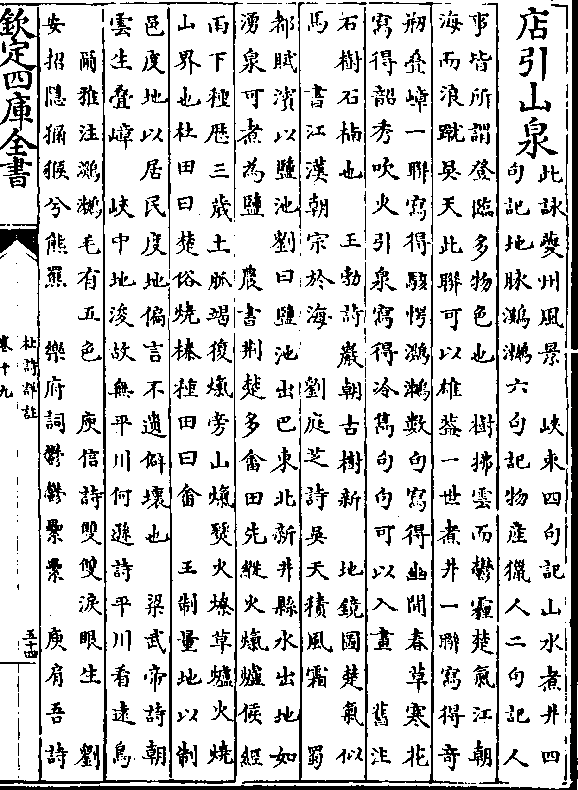 店引山泉
此詠夔州風景 峽束四句記山水煮井四
句記地脉鸂鶒六句記物産獵人二句記人
事皆所謂登臨多物色也 樹拂雲而鬱霾楚氣江朝
海而浪蹴吳天此聯可以雄葢一世煮井一聯寫得奇
刱叠嶂一聯寫得駭愕鸂鶒數句寫得幽閒春草寒花
寫得韶秀吹火引泉寫得冷雋句句可以入畫 舊注
石樹石楠也 王勃詩巖朝古樹新 地鏡圖楚氣似
馬 書江漢朝宗於海 劉庭芝詩吳天積風霜 蜀
都賦濱以鹽池劉曰鹽池出巴東北新井縣水出地如
湧泉可煮為鹽 農書荆楚多畬田先縱火熂爐候經
雨下種歴三歲土脈竭復熂旁山熂㸑火燎草爐火燒
山界也杜田曰楚俗燒榛種田曰畬 王制量地以制
邑度地以居民度地偏言不遺僻壤也 梁武帝詩朝
雲生叠嶂 峽中地浚故無平川何遜詩平川看遠鳥
爾雅注鸂鶒毛有五色 庾信詩雙雙淚眼生 劉
安招隠獼猴兮熊羆 樂府詞鬱鬱纍纍 庾肩吾詩
欽定四庫全書
杜詩詳註
卷十九
五十四